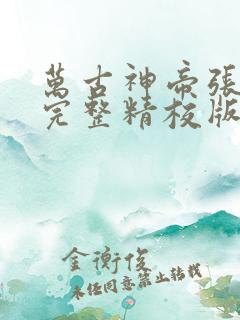 萬古神帝張
完整精校版
金衡俊
未经同意禁止转载